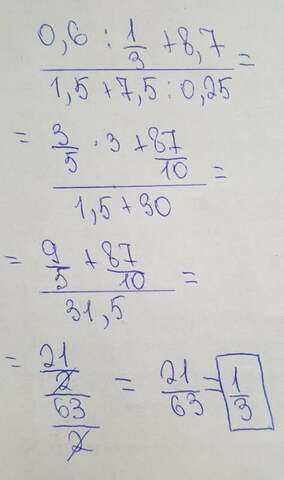 0,6 : 1/3 + 8,7
1,5 + 7,5 : 0,25 =
= 3/5 · 3 + 87/10
1,5 + 30 =
= 9/5 + 87/10
31,5 =
= 21/2
63/2 = 21/63 = 1/3